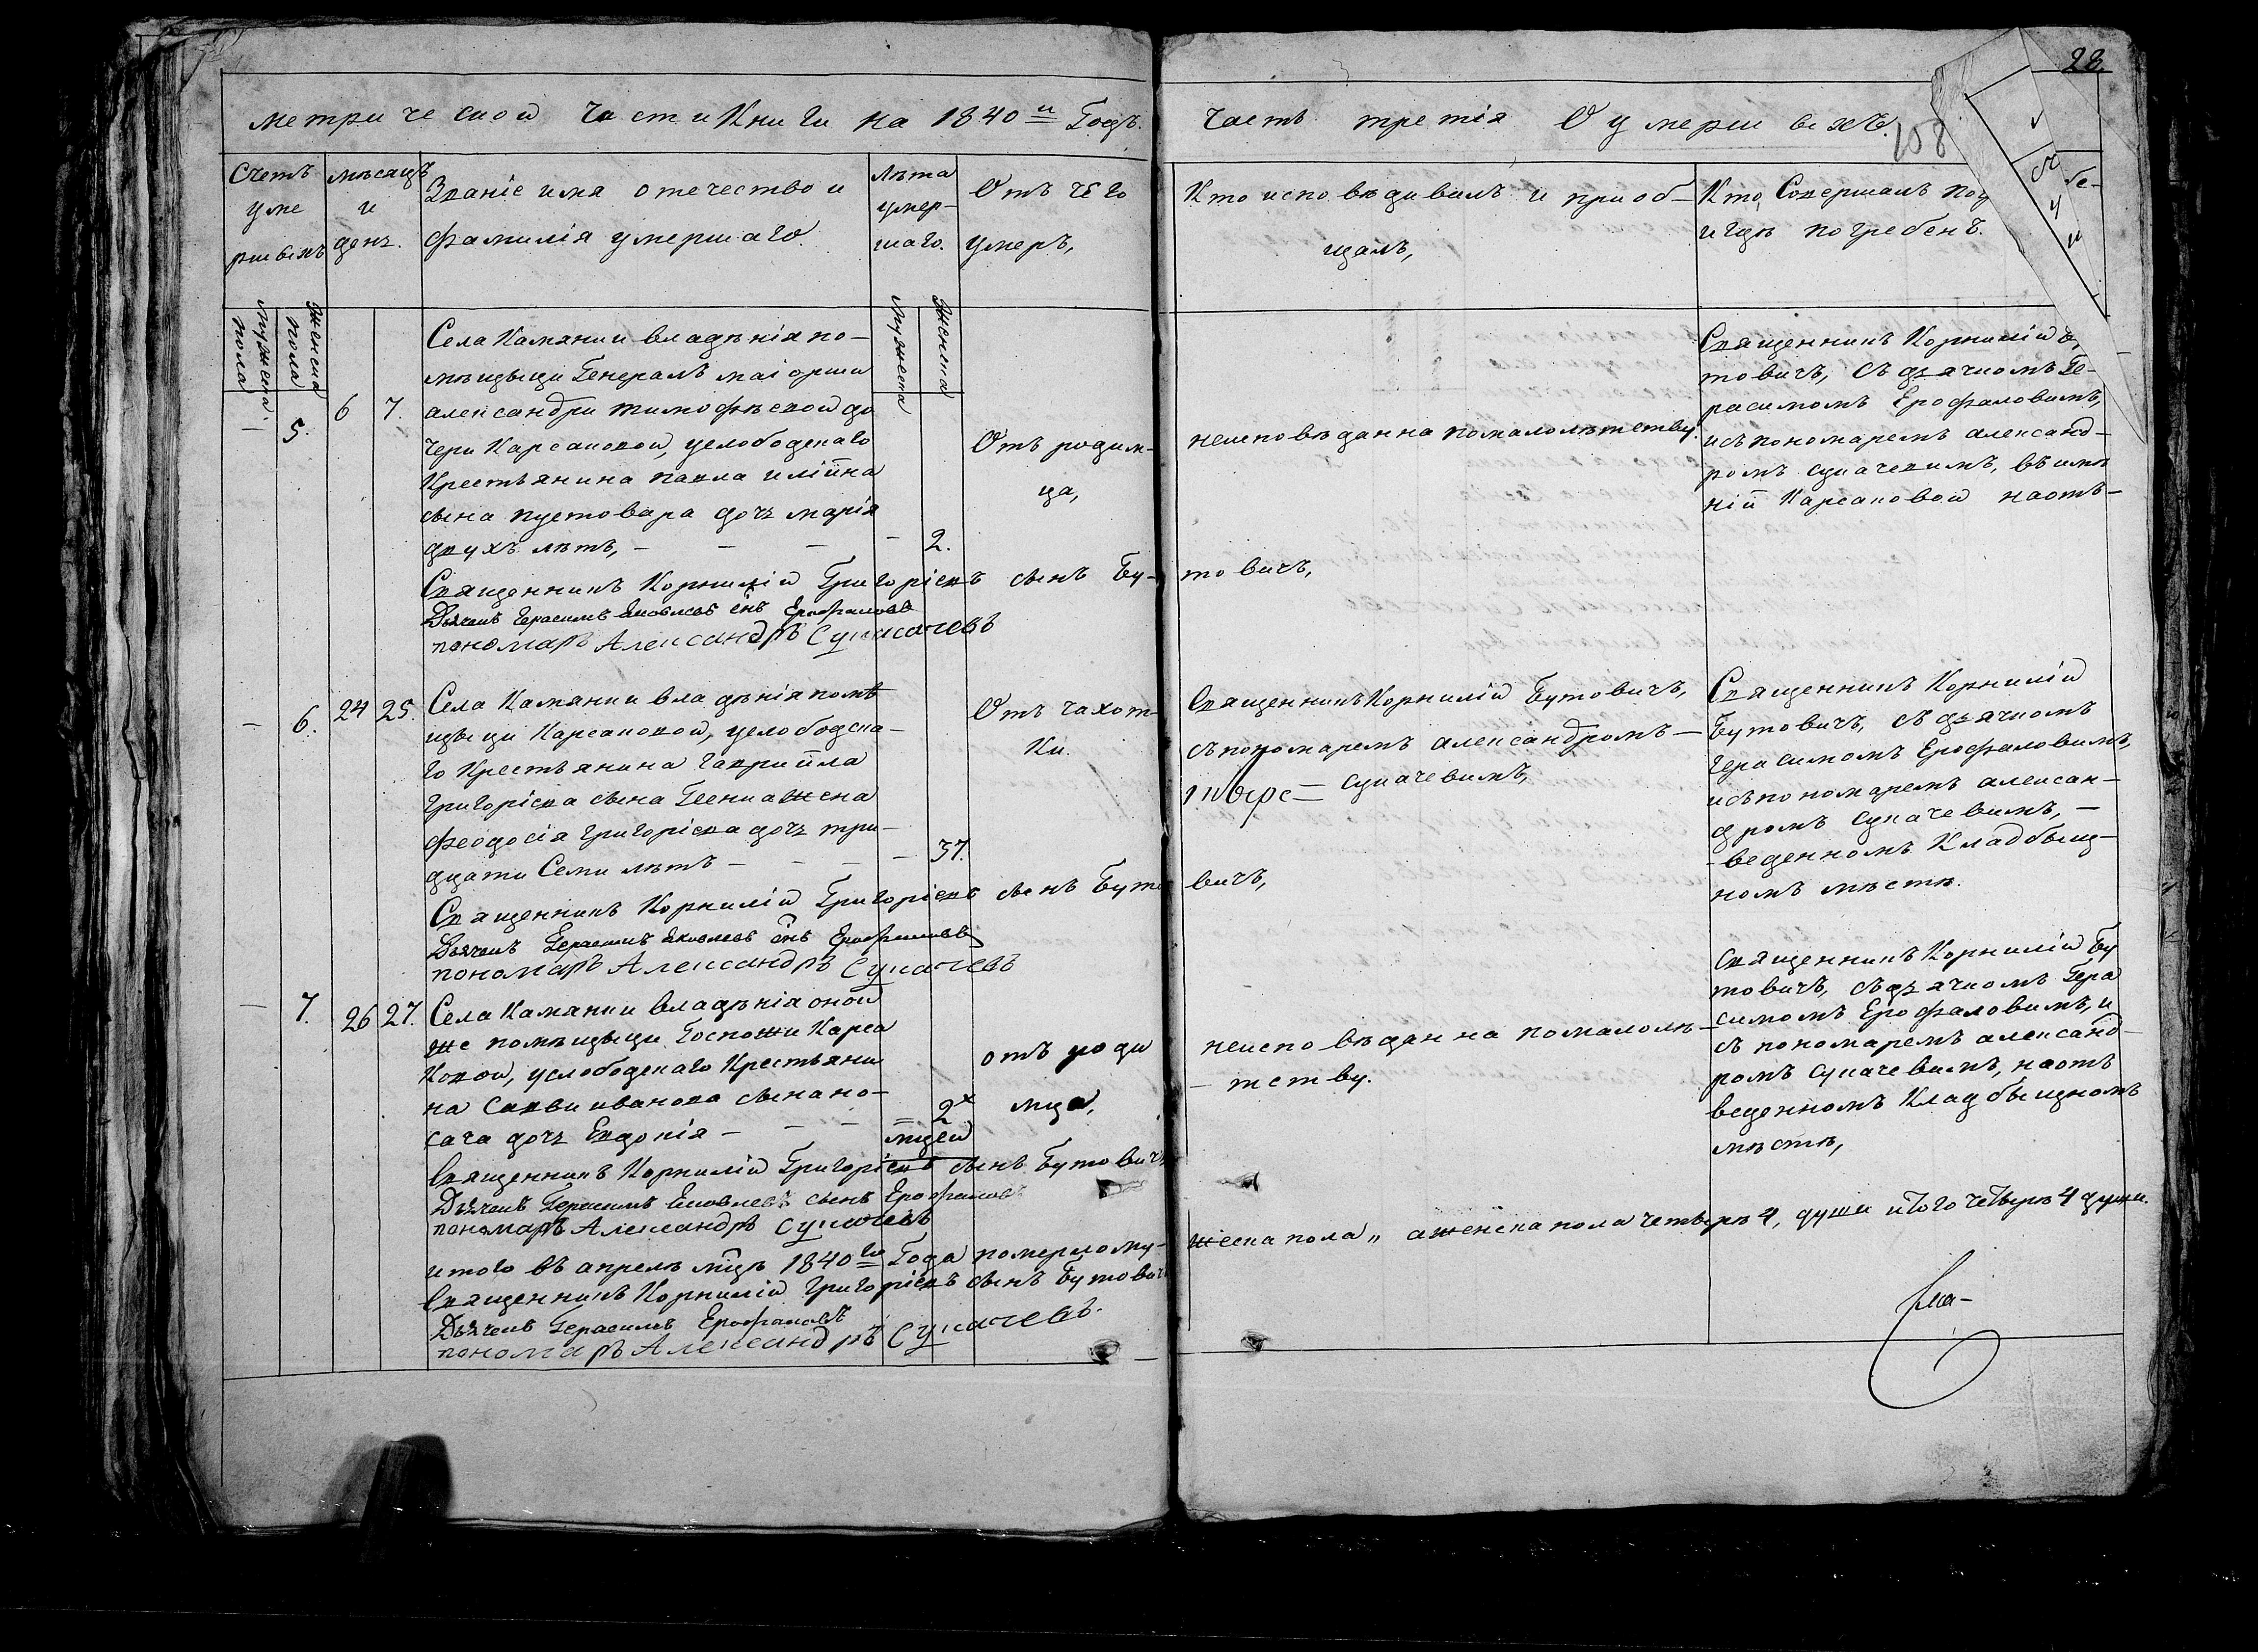 28.
метрической части Книги на 1840й Годъ.
Часть третія О умершихъ.
108
Счетъ умершихъ
мѣсяцъ и день.
Званіе имя отечество и
фамилія умершаго.
Лѣта умершаго.
Отъ чего умеръ,
Кто исповѣдивалъ и приобщалъ,
Кто Совершалъ
и гдѣ погребенъ.
Мужеска пола
Женска пола
Мужеска
Женска
— 5. 6 7.
Села Камянки владѣнія по-
мѣщыци Генералъ маіорши
александри тимофѣевой до
чери Карсаковой, услободскаго
Крестьянина павла иліина
сына пустовара дочъ марія
двухъ лѣтъ, — — — — 2.
Отъ родим-
ца,
неисповѣданна помалолѣтству.
Священникъ Корнилій
товичъ, съ дячкомъ Ге-
расимомъ Ерофаловимъ,
исъ пономаремъ александ-
ромъ Сукачевимъ, въ имѣ
ніи Карсаковой наотъ-
Священникъ Корнилій Григоріевъ сынъ Бу-товичъ,
Дьячекъ Герасимъ Яковлевъ снъ Ерофаловъ
пономаръ Александръ Сукачевъ
— 6. 24 25.
Села Камянки владѣнія помѣ
щыци Карсаковой, услободска-
го Крестьянина гавриила
григоріева сына Геенка Жена
феодосія григоріева дочъ три-
дцати Семи лѣтъ — — — — 37.
Отъ чахот-
ки.
Священникъ Корнилій Бутовичъ,
съ пономаремъ александромъ —
— Сукачевимъ,
Священникъ Корнилій
Бутовичъ, съ дячкомъ
герасимомъ Ерофаловимъ,
исъ пономаремъ алексан-
дромъ Сукачевимъ, —
- веденномъ Кладбыщ-
номъ мѣстѣ.
Священникъ Корнилій Григоріевъ сынъ Бутовичъ,
Дьячекъ Герасимъ Яковлевъ снъ Ерофаловъ
пономаръ Александръ Сукачевъ
— 7. 26 27.
Села Камянки владѣнія оной
же помѣщыци Госпожи Карса
Ковой, услободскаго Крестьяни
на Савви иванова сына но-
сача дочъ Евдокія — — — — 2х
мцей
отъ роди
мца,
неисповѣданна помалолѣ-
- тству.
Священникъ Корнилій Бу
товичъ, съ дячкомъ Гера
симомъ Ерофаловимъ, и
съ пономаремъ александ-
ромъ Сукачевимъ, наотъ
веденномъ Кладбыщномъ
мѣстѣ,
Священникъ Корнилій Григоріевъ сынъ Бутовичъ
Дьячекъ Герасимъ Яковлевъ сынъ Ерофаловъ
пономаръ Александръ Сукачевъ
итого въ апрелѣ мцѣ 1840го Года померло му-жеска пола „ аженска пола четыри 4, души итого четыри 4 души.
Священникъ Корнилій Григоріевъ сынъ Бутовичъ
Дьячекъ Герасимъ Ерофаловъ
пономаръ Александръ Сукачевъ.